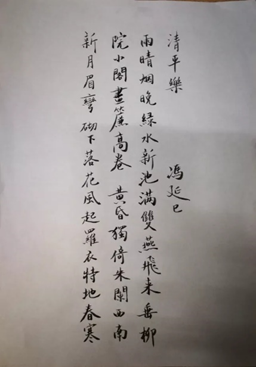 清平樂
馮延巳
雨晴烟晚綠水新池滿雙燕飛来垂柳
院小閣畫簾高卷 黄昏獨倚朱闌西南
新月眉彎砌下落花風起羅衣特地春寒